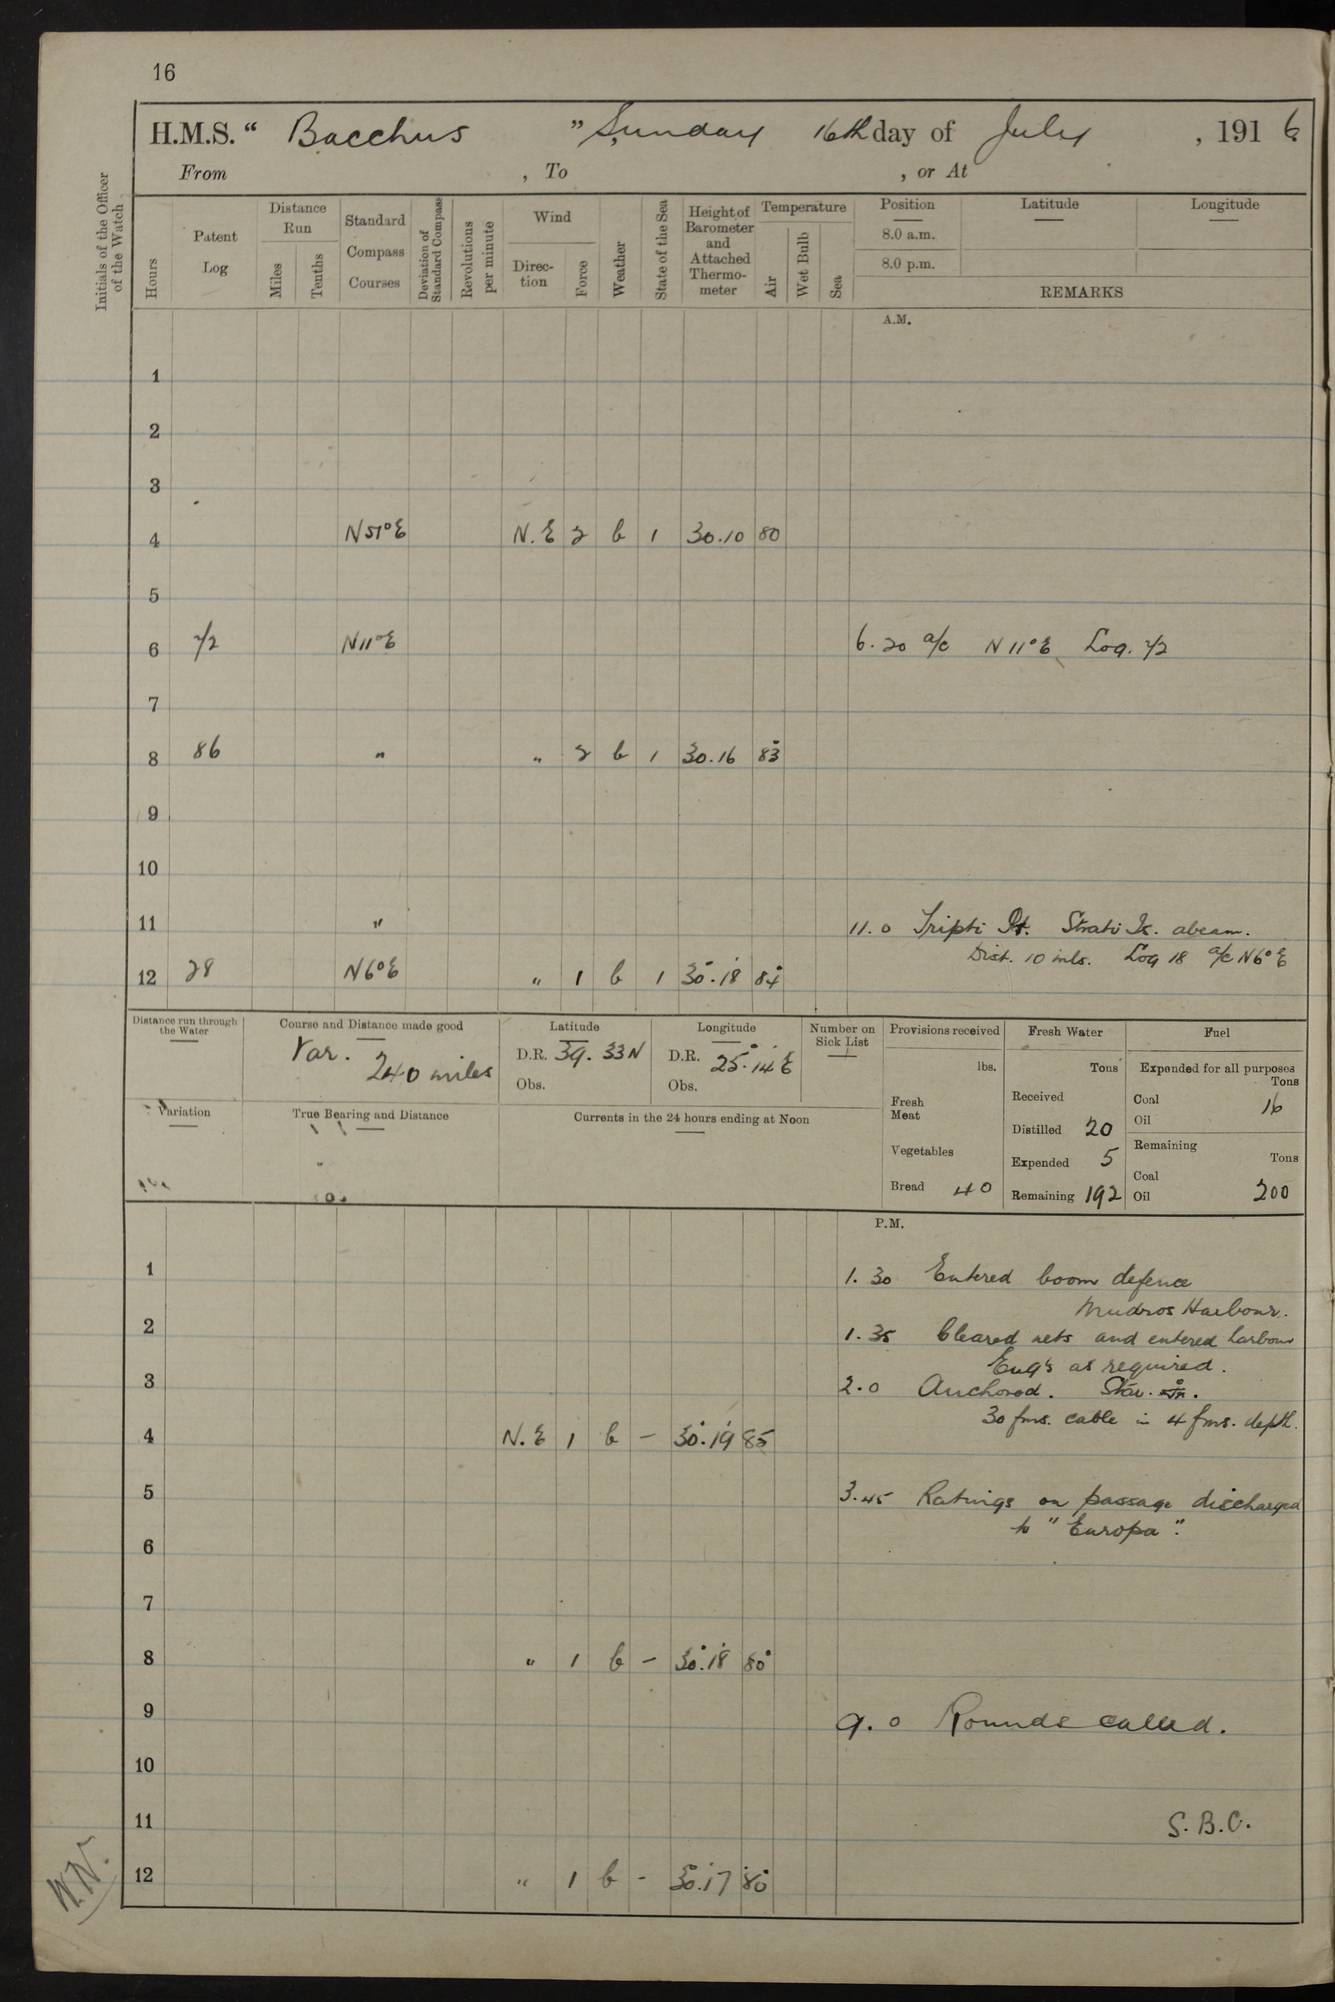 16
H.M.S. “ Bacchus ” Sunday 16th day of July , 191 6
From , To , or At
Initials of the Officer of the Watch
Hours
Patent Log
Distance Run
Miles
Tenths
Standard Compass Courses
Deviation of Standard Compass
Revolutions per minute
Wind
Direction
Force
Weather
State of the Sea
Height of Barometer and Attached Thermometer
Temperature
Air
Wet Bulb
Sea
Position Latitude Longitude
8.0 a.m.
8.0 p.m.
REMARKS
A.M.
1
2
3
4 N51°E N.E 2 b 1 30.10 80
5
6 72 N11°E 6.20 a/c N11°E Log. 72
7
8 86 " " 2 b 1 30.16 83
9
10
11 " 11.0 Tripti Pt. Strati Is. abeam.
Dist. 10 mls. Log 18 a/c N6°E
12 28 N6°E " 1 b 1 30.18 84
Distance run through the Water
Course and Distance made good
Var. 240 miles
Latitude
D.R. 39. 33N
Obs.
Longitude
D.R. 25°.14'E
Obs.
Number on Sick List
Provisions received
lbs.
Fresh Meat
Vegetables
Bread 40
Fresh Water
Tons
Received
Distilled 20
Expended 5
Remaining 192
Fuel
Expended for all purposes
Tons
Coal 16
Oil
Remaining
Tons
Coal
Oil 200
Variation
True Bearing and Distance
Currents in the 24 hours ending at Noon
P.M.
1 1.30 Entered boom defence
Mudros Harbour.
2 1.35 Cleared nets and entered harbour
Eng's as required.
3 2.0 Anchored. Star.
30 fms. cable in 4 fms. depth.
4 N.E 1 b - 30.19 85
5 3.45 Ratings on passage discharged
to "Europa".
6
7
8 " 1 b - 30.18 80
9 9.0 Rounds called.
10
11 S.B.C.
12 " 1 b - 30.17 80
W.N.